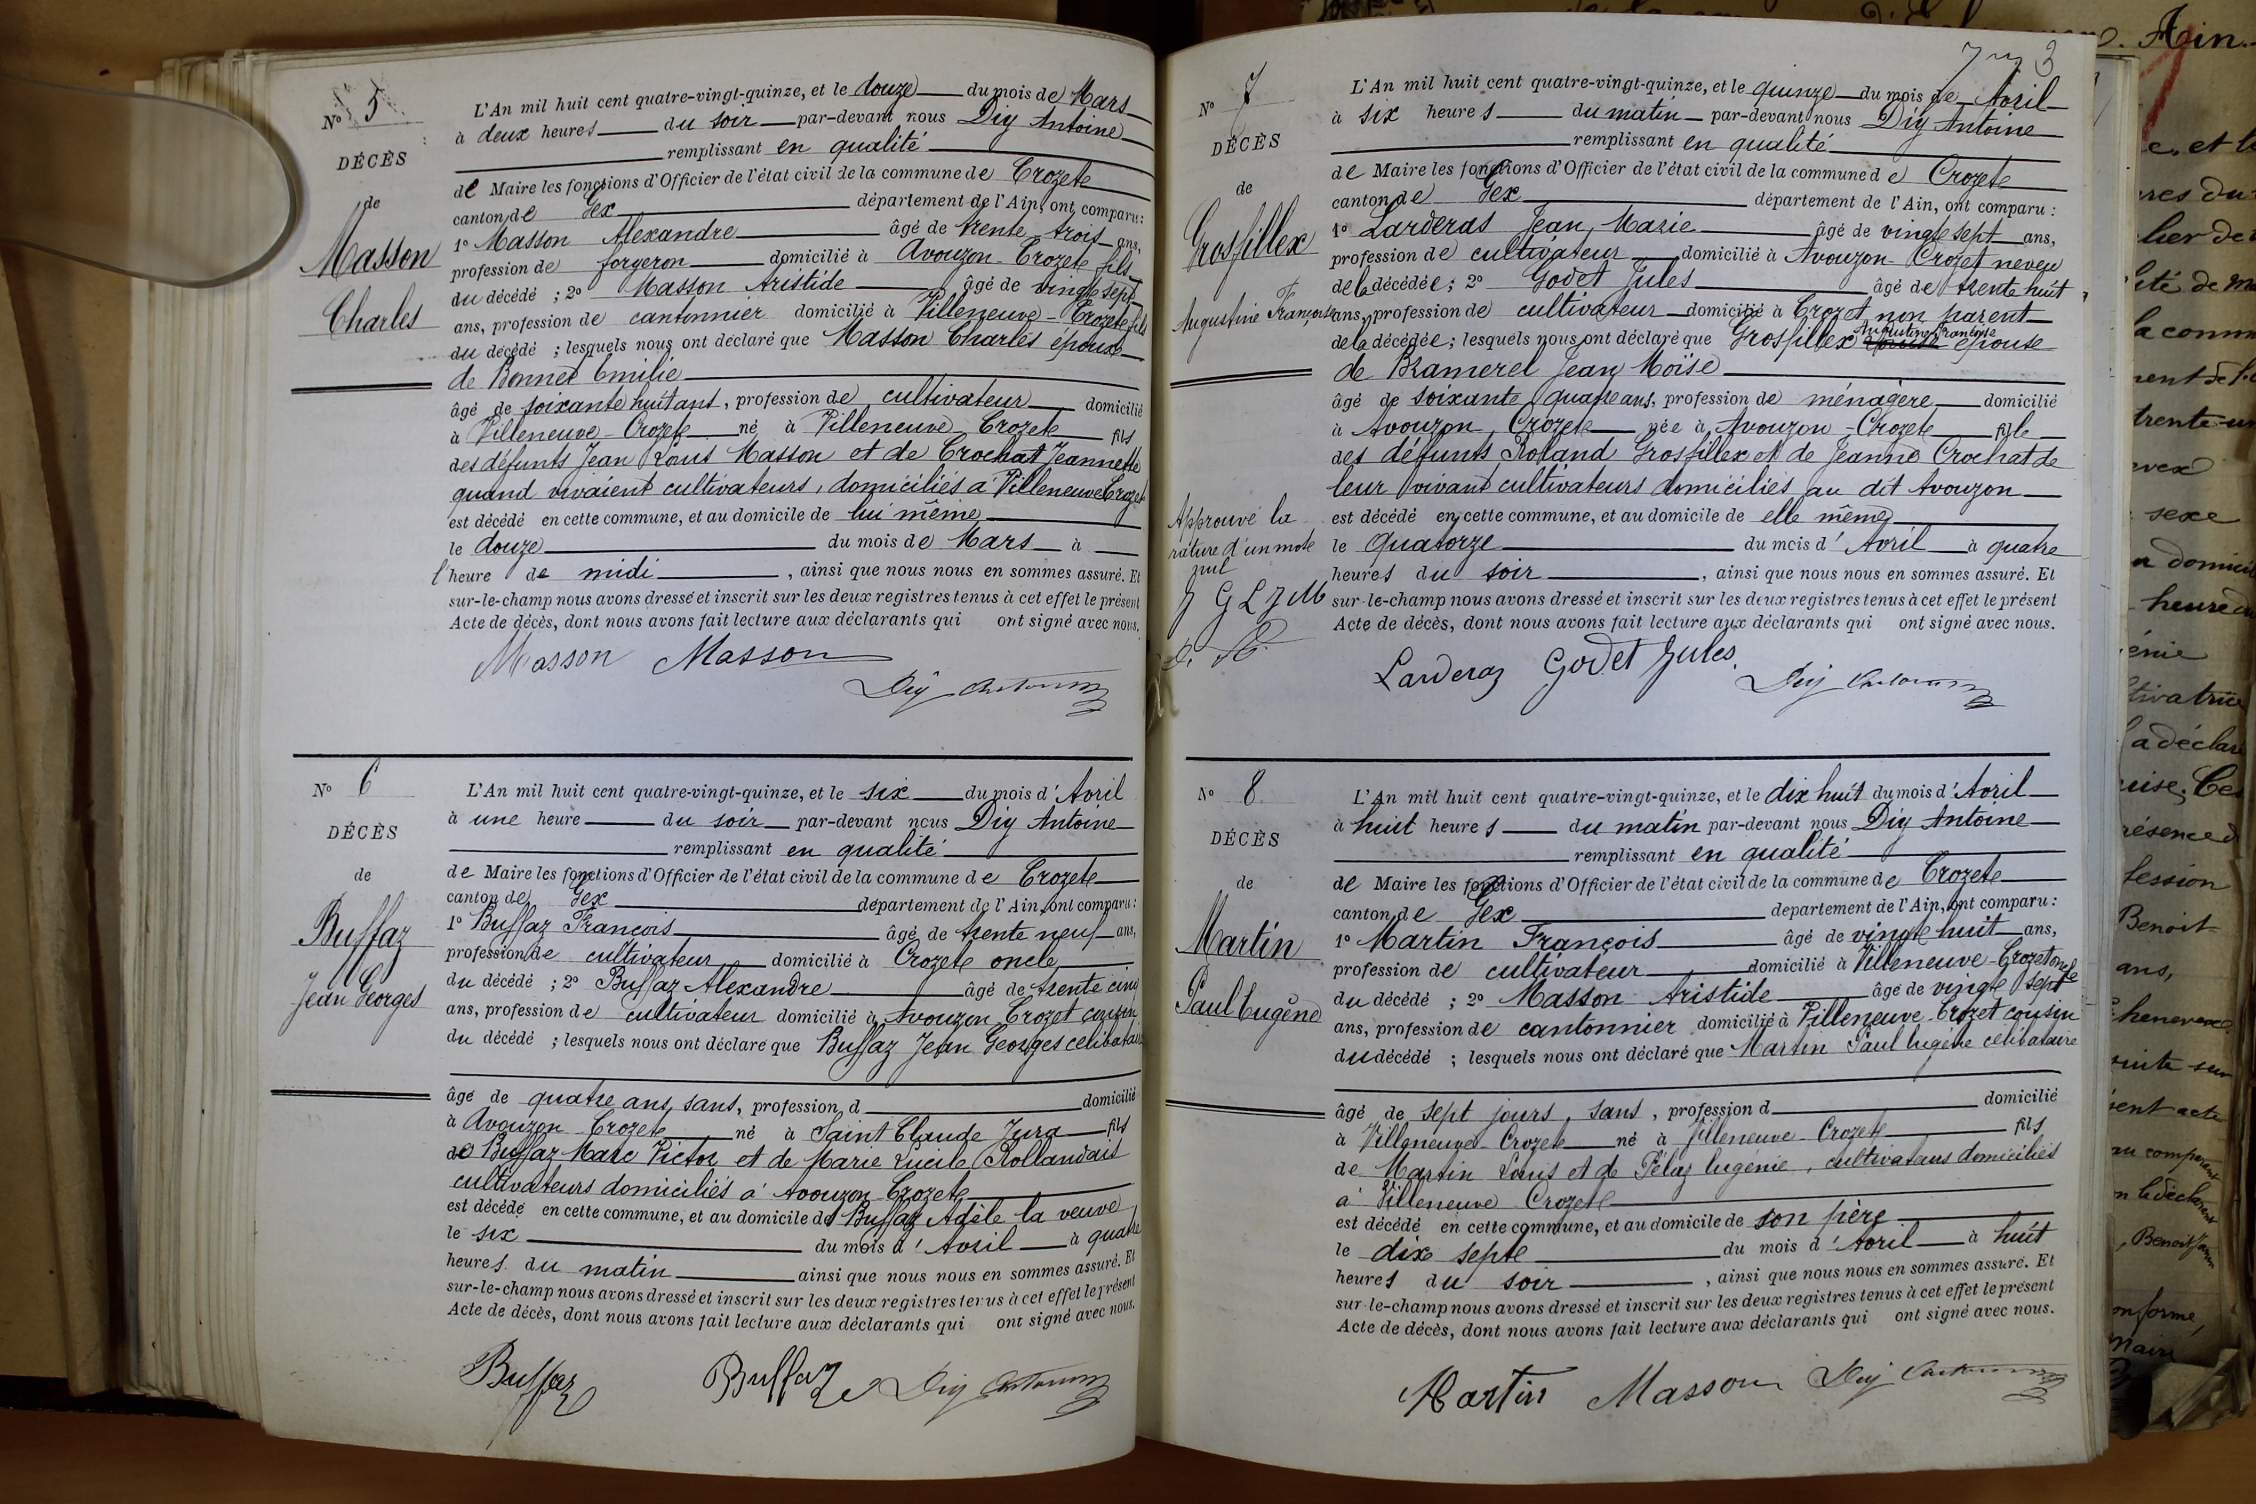 N° 5
DÉCÈS
de
Masson
Charles
L'An mil huit cent quatre-vingt-quinze, et le douze du mois de Mars
à deux heures du soir par-devant nous Dig Antoine
remplissant en qualité
de Maire les fonctions d'Officier de l'état civil de la commune de Crozet
canton de Gex département de l'Ain, ont comparu :
1° Masson Alexandre âgé de trente trois ans,
profession de forgeron domicilié à Avouzon-Crozet fils
du décédé ; 2° Masson Aristide âgé de vingt sept
ans, profession de cantonnier domicilié à Villeneuve-Crozet fils
du décédé ; lesquels nous ont déclaré que Masson Charles époux
de Bonnet Emilie
âgé de soixante huit ans, profession de cultivateur domicilié
à Villeneuve-Crozet né à Villeneuve Crozet fils
des défunts Jean Louis Masson et de Crochat Jeannette
quand vivaient cultivateurs, domiciliés à Villeneuve Crozet
est décédé en cette commune, et au domicile de lui même
le douze du mois de Mars à
l'heure de midi , ainsi que nous nous en sommes assuré. Et
sur-le-champ nous avons dressé et inscrit sur les deux registres tenus à cet effet le présent
Acte de décès, dont nous avons fait lecture aux déclarants qui ont signé avec nous.
Masson Masson
Dig Antoine
N° 6
DÉCÈS
de
Buffaz
Jean Georges
L'An mil huit cent quatre-vingt-quinze, et le six du mois d'Avril
à une heure du soir par-devant nous Dig Antoine
remplissant en qualité
de Maire les fonctions d'Officier de l'état civil de la commune de Crozet
canton de Gex département de l'Ain, ont comparu :
1° Buffaz François âgé de trente neuf ans,
profession de cultivateur domicilié à Crozet oncle
du décédé ; 2° Buffaz Alexandre âgé de trente cinq
ans, profession de cultivateur domicilié à Avouzon Crozet cousin
du décédé ; lesquels nous ont déclaré que Buffaz Jean Georges célibataire
âgé de quatre ans, sans, profession d domicilié
à Avouzon Crozet né à Saint Claude Jura fils
de Buffaz Marc Victor et de Marie Lucile Rollandais
cultivateurs domiciliés à Avouzon Crozet
est décédé en cette commune, et au domicile de Buffaz Adèle la veuve
le six du mois d'Avril à quatre
heures du matin ainsi que nous nous en sommes assuré. Et
sur-le-champ nous avons dressé et inscrit sur les deux registres tenus à cet effet le présent
Acte de décès, dont nous avons fait lecture aux déclarants qui ont signé avec nous.
Buffaz Buffaz Dig Antoine
3
N° 7
DÉCÈS
de
Grosfillex
Augustine Françoise
L'An mil huit cent quatre-vingt-quinze, et le quinze du mois de Avril
à six heures du matin par-devant nous Dig Antoine
remplissant en qualité
de Maire les fonctions d'Officier de l'état civil de la commune de Crozet
canton de Gex département de l'Ain, ont comparu :
1° Larderas Jean Marie âgé de vingt sept ans,
profession de cultivateur domicilié à Avouzon-Crozet neveu
de la décédée ; 2° Godet Jules âgé de trente huit
ans, profession de cultivateur domicilié à Crozet non parent
Augustine Françoise
de la décédée ; lesquels nous ont déclaré que Grosfillex épouse
de Bramerel Jean Moïse
âgé de soixante quatre ans, profession de ménagère domicilié
à Avouzon Crozet née à Avouzon-Crozet fille
des défunts Roland Grosfillex et de Jeanne Crochat de
leur vivant cultivateurs domiciliés au dit Avouzon
est décédé en cette commune, et au domicile de elle même
le quatorze du mois d'Avril à quatre
heures du soir , ainsi que nous nous en sommes assuré. Et
sur-le-champ nous avons dressé et inscrit sur les deux registres tenus à cet effet le présent
Acte de décès, dont nous avons fait lecture aux déclarants qui ont signé avec nous.
Approuvé la
rature d'un mot
nul
J G L J M
Larderaz Godet Jules. Dig Antoine
N° 8
DÉCÈS
de
Martin
Paul Eugène
L'An mil huit cent quatre-vingt-quinze, et le dix huit du mois d'Avril
à huit heures du matin par-devant nous Dig Antoine
remplissant en qualité
de Maire les fonctions d'Officier de l'état civil de la commune de Crozet
canton de Gex département de l'Ain, ont comparu :
1° Martin François âgé de vingt huit ans,
profession de cultivateur domicilié à Villeneuve-Crozet oncle
du décédé ; 2° Masson Aristide âgé de vingt sept
ans, profession de cantonnier domicilié à Villeneuve Crozet cousin
du décédé ; lesquels nous ont déclaré que Martin Paul Eugène célibataire
âgé de sept jours, sans, profession d domicilié
à Villeneuve Crozet né à Villeneuve-Crozet fils
de Martin Louis et de Pélaz Eugénie, cultivateurs domiciliés
à Villeneuve Crozet
est décédé en cette commune, et au domicile de son père
le dix sept du mois d'Avril à huit
heures du soir , ainsi que nous nous en sommes assuré. Et
sur-le-champ nous avons dressé et inscrit sur les deux registres tenus à cet effet le présent
Acte de décès, dont nous avons fait lecture aux déclarants qui ont signé avec nous.
Martin Masson Dig Antoine
Ain.
et le
sexe
domicile
heure du
Benoit
ans,
acte